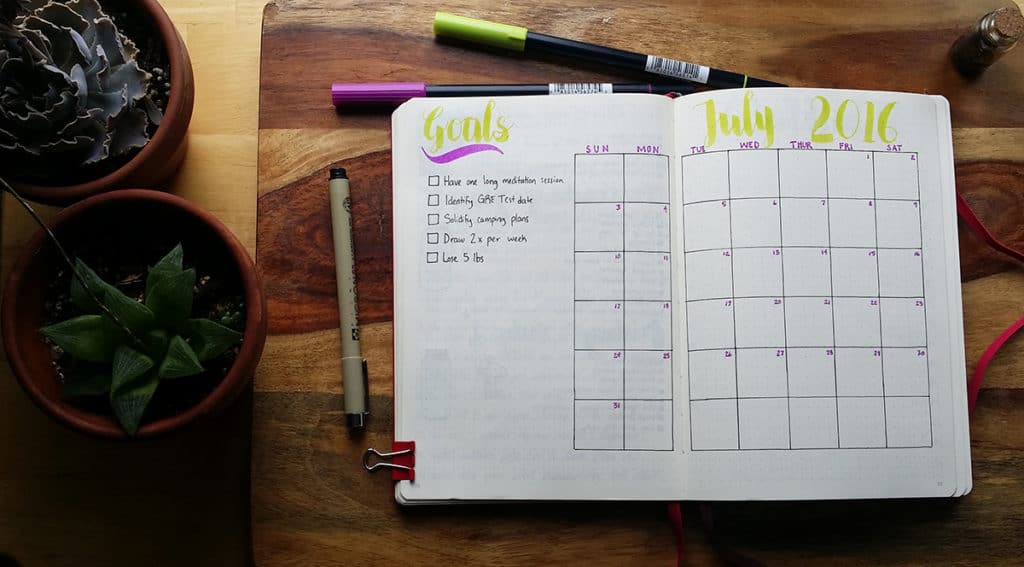 Goals
July 2016
SUN MON TUE WED THUR FRI SAT
Have one long meditation session
Identify GRE Test date
Solidify camping plans
Draw 2x per week
Lose 5 lbs
1 2
3 4 5 6 7 8 9
10 11 12 13 14 15 16
17 18 19 20 21 22
24 25 26 27 28 29 30
31